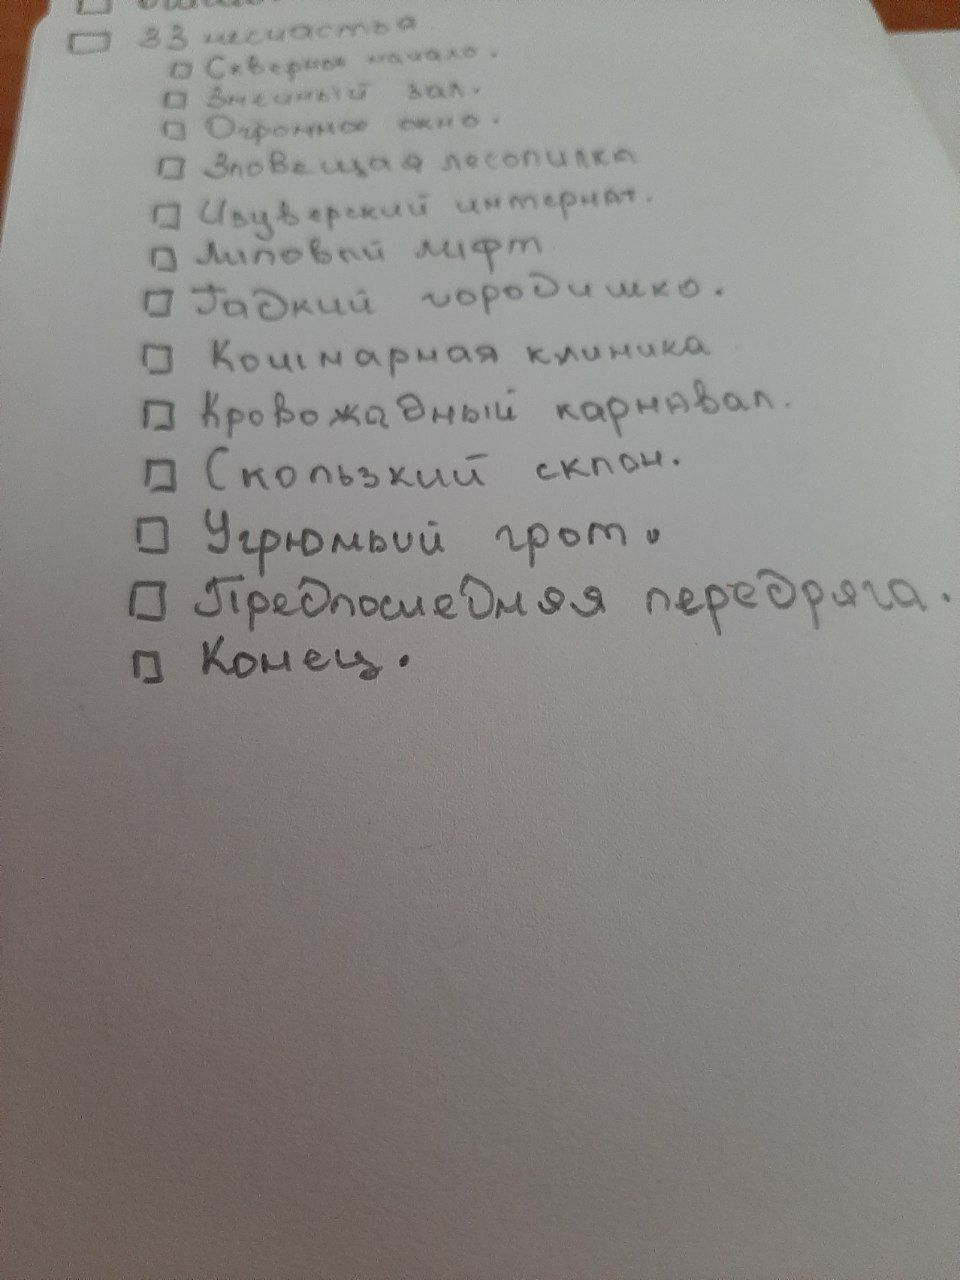 33 несчастья
Скверное начало.
Змеиный зал.
Огромное окно.
Зловещая лесопилка
Изуверский интернат.
Липовый лифт
Гадкий городишко.
Кошмарная клиника
Кровожадный карнавал.
Скользкий склон.
Угрюмый грот.
Предпоследняя передряга.
Конец.